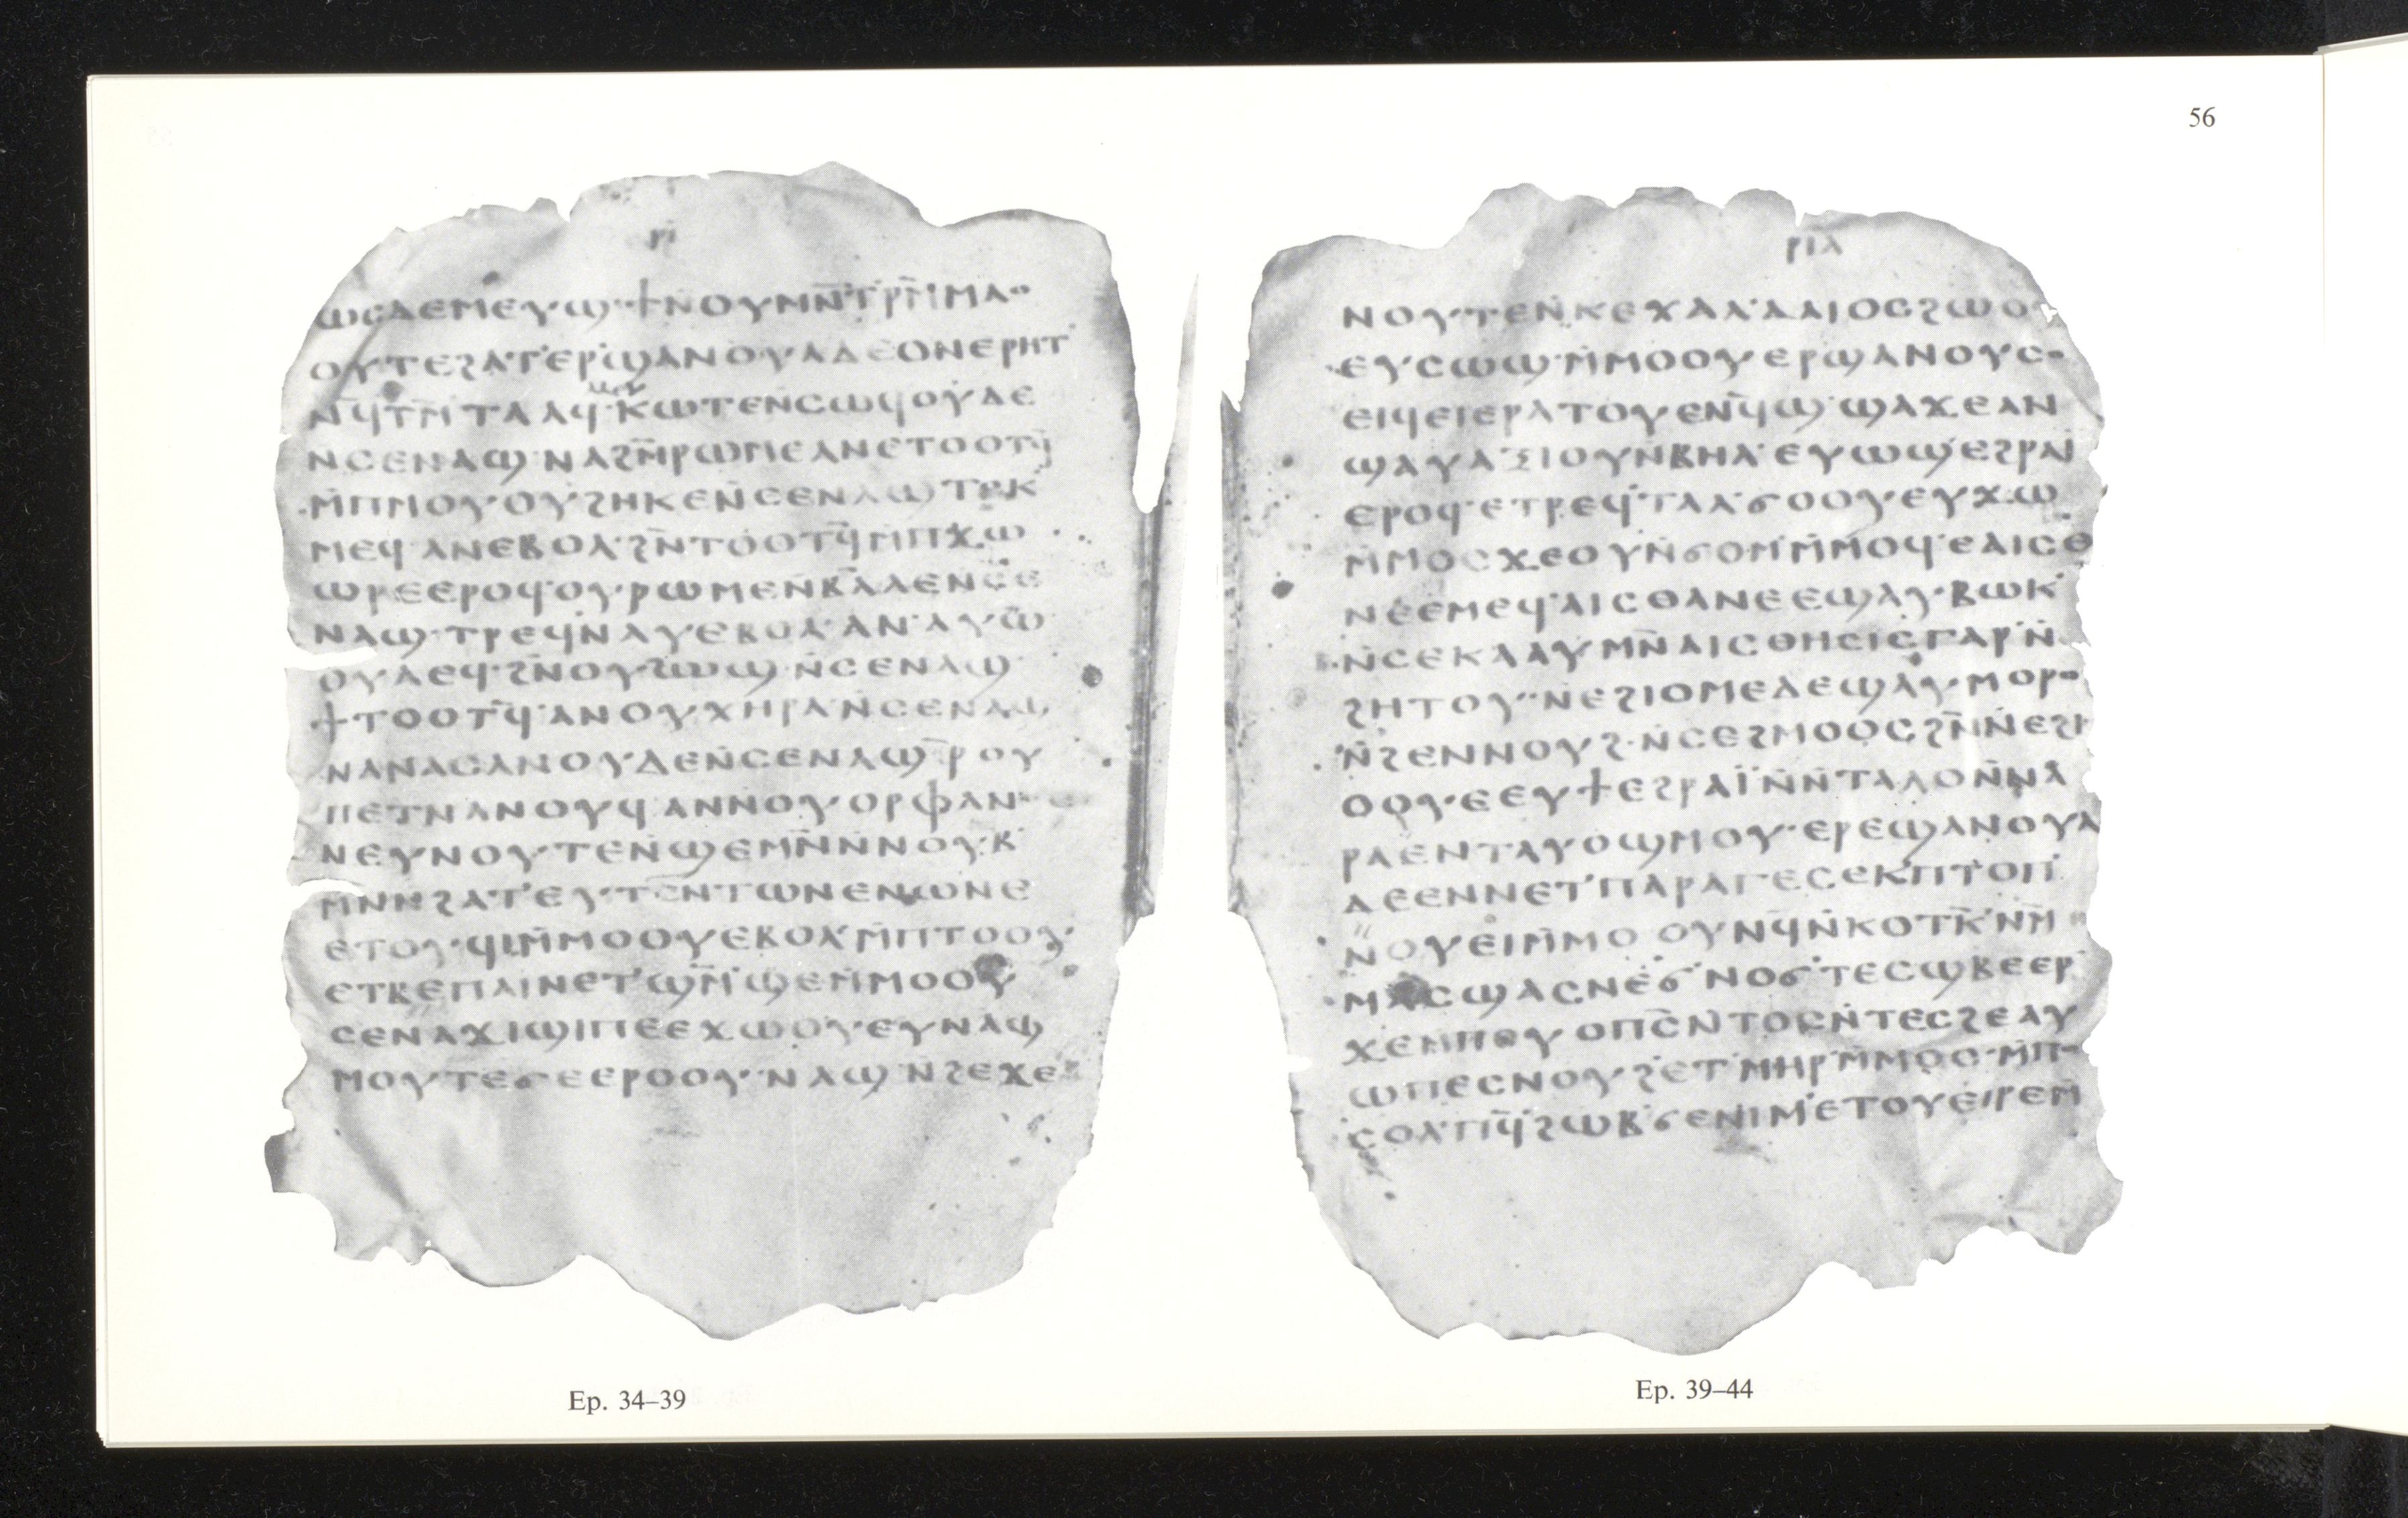 56
ⲣⲓ
ⲱⲥⲁⲉⲙⲉⲩϣ ϯⲛⲟⲩⲙⲛ̄ⲧⲣⲙ̄ⲙⲁⲟ
ⲟⲩⲧⲉϩⲁⲧ ⲉⲣϣⲁⲛⲟⲩⲁⲇⲉⲟⲛⲉⲣⲏⲧ
ⲛ̄ϥⲧⲙ̄ⲧⲁⲁϥ ⲕⲱⲧⲉⲛⲥⲱϥⲟⲩⲇⲉ
ⲛⲥⲉⲛⲁϣ ⲛⲁϩⲙ̄ⲣⲱⲙⲉⲁⲛⲉⲧⲟⲟⲧϥ̄
ⲙ̄ⲡⲙⲟⲩ ⲟⲩϩⲏⲕⲉⲛ̄ⲥⲉⲛⲁϣ ⲧⲣⲕ
ⲙⲉϥ ⲁⲛⲉⲃⲟⲗ ϩⲛ̄ⲧⲟⲟⲧϥ̄ⲙ̄ⲡϫⲱ
ⲱⲣⲉⲉⲣⲟϥ ⲟⲩⲣⲱⲙⲉⲛ̄ⲃⲗ̄ⲗⲉⲛⲥⲉ
ⲛⲁϣ ⲧⲣⲉϥⲛⲁⲩⲉⲃⲟⲗ ⲁⲛ ⲁⲩⲱ
ⲟⲩⲇⲉϥ ϩⲛ̄ⲟⲩϩⲱϣ ⲛ̄ⲥⲉⲛⲁϣ
ϯⲧⲟⲟⲧϥ̄ ⲁⲛⲟⲩⲭⲏⲣⲁⲛ̄ⲥⲉⲛⲁϣ
ⲛⲁⲛⲁⲥⲁⲛⲟⲩⲇⲉⲛ̄ⲥⲉⲛⲁϣ ⲣ̄ⲟⲩ
ⲡⲉⲧⲛⲁⲛⲟⲩϥ ⲁⲛⲛⲟⲩⲟⲣⲫⲁⲛⲟⲥ
ⲛⲉⲩⲛⲟⲩⲧⲉⲛ̄ϣⲉⲙⲛ̄ⲛⲛⲟⲩⲃ
ⲙⲛⲛϩⲁⲧ ⲉⲩⲧⲛ̄ⲧⲱⲛⲉⲛⲱⲛⲉ
ⲉⲧⲟⲩϥⲓⲙ̄ⲙⲟⲟⲩⲉⲃⲟⲗ ⲙ̄ⲡⲧⲟⲟⲩ
ⲉⲧⲃⲉⲡⲁⲓⲛⲉⲧϣⲙ̄ϣⲉⲙ̄ⲙⲟⲟⲩ
ⲥⲉⲛⲁϫⲓϣⲓⲡⲉⲉϫⲱⲟⲩ ⲉⲩⲛⲁϣ
ⲙⲟⲩⲧⲉϭⲉⲉⲣⲟⲟⲩ ⲛⲁϣ ⲛ̄ϩⲉϫⲉ
Ep. 34–39
ⲣⲓⲁ
ⲛⲟⲩⲧⲉⲛ̄ⲕⲉⲭⲁⲗⲇⲁⲓⲟⲥϩⲱⲟ
ⲉⲩⲥⲱϣ ⲙ̄ⲙⲟⲟⲩ ⲉⲣϣⲁⲛⲟⲩⲥ
ⲉⲓϥⲉⲓⲉⲣⲁⲧⲟⲩ ⲉⲛϥ̄ϣ ϣⲁϫⲉⲁⲛ
ϣⲁⲩⲁⲝⲓⲟⲩⲛ̄ⲃⲏⲗ ⲉⲩⲱϣ ⲉϩⲣⲁⲓ
ⲉⲣⲟϥ ⲉⲧⲣⲉϥ ⲧⲁⲗϭⲟⲟⲩ ⲉⲩϫⲱ
ⲙ̄ⲙⲟⲥϫⲉⲟⲩⲛ̄ϭⲟⲙ ⲙ̄ⲙⲟϥ ⲉⲁⲓⲥⲑ
ⲛⲉⲉⲙⲉϥ ⲁⲓⲥⲑⲁⲛⲉⲉϣⲁⲩ ⲃⲱⲕ
ⲛ̄ⲥⲉⲕⲁⲁⲩ ⲙⲛ̄ⲁⲓⲥⲑⲏⲥⲓⲥ ⲅⲁⲣ ⲛ̄
ϩⲏⲧⲟⲩ ⲛⲉϩⲓⲟⲙⲉⲇⲉϣⲁⲩ ⲙⲟⲣⲟⲩ
ⲛ̄ϩⲉⲛⲛⲟⲩϩ ⲛ̄ⲥⲉϩⲙⲟⲟⲥ ϩⲛ̄ⲛⲉϩⲓ
ⲟⲟⲩⲉ ⲉⲩϯⲉϩⲣⲁⲓ̈ⲛ̄ⲛ̄ⲧⲁⲗⲟⲛ̄ⲛⲁ
ⲣⲁⲉⲛⲧⲁⲩⲟϣⲙⲟⲩ ⲉⲣⲉϣⲁⲛⲟⲩⲁ
ⲇⲉⲉⲛⲛⲉⲧ ⲡⲁⲣⲁⲅⲉⲥⲉⲕⲡⲧⲟⲡ
ⲛⲟⲩⲉⲓⲙ̄ⲙⲟ ⲟⲩⲛϥⲛ̄ⲕⲟⲧⲕ̄ ⲛⲙ̄
ⲙⲁⲥϣⲁⲥⲛⲉϭ ⲛⲟϭ ⲧⲉⲥϣⲃⲉⲉⲣ
ϫⲉⲙⲡⲟⲩⲟⲡⲥ̄ ⲛ̄ⲧⲟⲥⲛ̄ⲧⲉⲥϩⲉⲁⲩ
ⲱⲡⲉⲥⲛⲟⲩϩ ⲉⲧ ⲙⲏⲣ ⲙ̄ⲙⲟⲥ ⲙ̄ⲡ
ⲥⲟⲗⲡϥ̄ ϩⲱⲃ ϭⲉⲛⲓⲙ ⲉⲧⲟⲩⲉⲓⲣⲉⲙ̄
Ep. 39–44